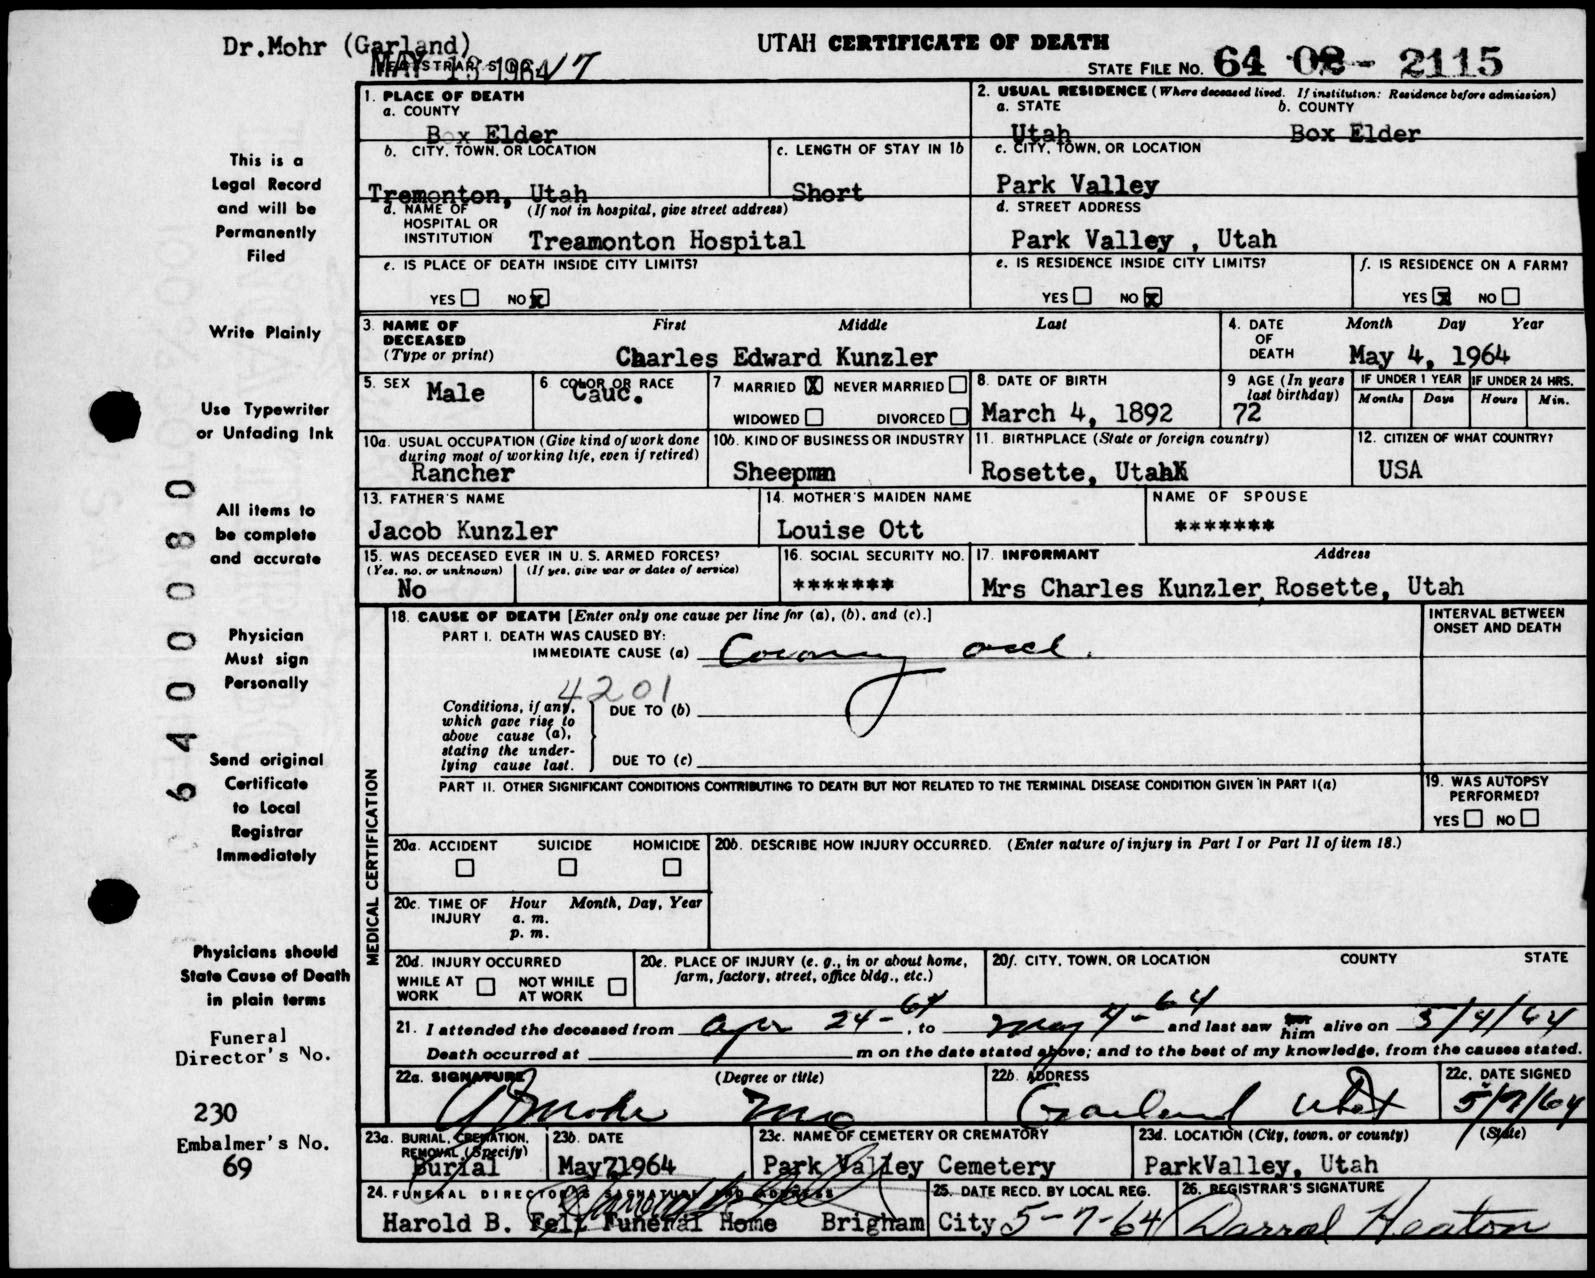 Dr.Mohr (Garland)
UTAH CERTIFICATE OF DEATH
MAY 13 1964
REGISTRAR'S NO. 17
STATE FILE NO. 64 02- 2115
1. PLACE OF DEATH
a. COUNTY
Box Elder
2. USUAL RESIDENCE (Where deceased lived. If institution: Residence before admission)
a. STATE b. COUNTY
Utah Box Elder
b. CITY, TOWN, OR LOCATION
Tremonton, Utah
c. LENGTH OF STAY IN 1b
Short
c. CITY, TOWN, OR LOCATION
Park Valley
d. NAME OF HOSPITAL OR INSTITUTION (If not in hospital, give street address)
Treamonton Hospital
d. STREET ADDRESS
Park Valley , Utah
e. IS PLACE OF DEATH INSIDE CITY LIMITS?
YES NO X
e. IS RESIDENCE INSIDE CITY LIMITS?
YES NO X
f. IS RESIDENCE ON A FARM?
YES X NO
3. NAME OF DECEASED (Type or print)
First Middle Last
Charles Edward Kunzler
4. DATE OF DEATH
Month Day Year
May 4, 1964
5. SEX
Male
6 COLOR OR RACE
Cauc.
7 MARRIED X NEVER MARRIED
WIDOWED DIVORCED
8. DATE OF BIRTH
March 4, 1892
9 AGE (In years last birthday)
72
IF UNDER 1 YEAR IF UNDER 24 HRS.
Months Days Hours Min.
10a. USUAL OCCUPATION (Give kind of work done during most of working life, even if retired)
Rancher
10b. KIND OF BUSINESS OR INDUSTRY
Sheepman
11. BIRTHPLACE (State or foreign country)
Rosette, Utah
12. CITIZEN OF WHAT COUNTRY?
USA
13. FATHER'S NAME
Jacob Kunzler
14. MOTHER'S MAIDEN NAME
Louise Ott
NAME OF SPOUSE
*******
15. WAS DECEASED EVER IN U. S. ARMED FORCES?
(Yes, no, or unknown) (If yes, give war or dates of service)
No
16. SOCIAL SECURITY NO.
*******
17. INFORMANT Address
Mrs Charles Kunzler, Rosette, Utah
18. CAUSE OF DEATH [Enter only one cause per line for (a), (b), and (c).]
PART I. DEATH WAS CAUSED BY:
IMMEDIATE CAUSE (a) Coronary occl.
INTERVAL BETWEEN ONSET AND DEATH
4201
Conditions, if any, which gave rise to above cause (a), stating the underlying cause last.
DUE TO (b)
DUE TO (c)
PART II. OTHER SIGNIFICANT CONDITIONS CONTRIBUTING TO DEATH BUT NOT RELATED TO THE TERMINAL DISEASE CONDITION GIVEN IN PART I(a)
19. WAS AUTOPSY PERFORMED?
YES NO
MEDICAL CERTIFICATION
20a. ACCIDENT SUICIDE HOMICIDE
20b. DESCRIBE HOW INJURY OCCURRED. (Enter nature of injury in Part I or Part II of item 18.)
20c. TIME OF INJURY Hour Month, Day, Year
a. m.
p. m.
20d. INJURY OCCURRED
WHILE AT WORK NOT WHILE AT WORK
20e. PLACE OF INJURY (e. g., in or about home, farm, factory, street, office bldg., etc.)
20f. CITY, TOWN, OR LOCATION COUNTY STATE
21. I attended the deceased from Apr 24-64, to May 4-64 and last saw him alive on 5/4/64
Death occurred at m on the date stated above; and to the best of my knowledge, from the causes stated.
22a. SIGNATURE (Degree or title)
Mohr MD
22b. ADDRESS
Garland Utah
22c. DATE SIGNED
5/7/64
23a. BURIAL, CREMATION, REMOVAL (Specify)
Burial
23b. DATE
May71964
23c. NAME OF CEMETERY OR CREMATORY
Park Valley Cemetery
23d. LOCATION (City, town, or county) (State)
ParkValley, Utah
24. FUNERAL DIRECTOR'S SIGNATURE AND ADDRESS
Harold B. Felt Funeral Home Brigham City
25. DATE RECD. BY LOCAL REG.
5-7-64
26. REGISTRAR'S SIGNATURE
Darrel Heaton
This is a
Legal Record
and will be
Permanently
Filed
Write Plainly
Use Typewriter
or Unfading Ink
All items to
be complete
and accurate
Physician
Must sign
Personally
Send original
Certificate
to Local
Registrar
Immediately
Physicians should
State Cause of Death
in plain terms
Funeral
Director's No.
230
Embalmer's No.
69
64000080